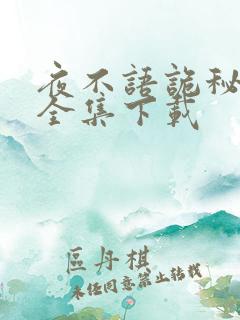 夜不語詭秘
全集下載
區丹棋
未经同意禁止转载